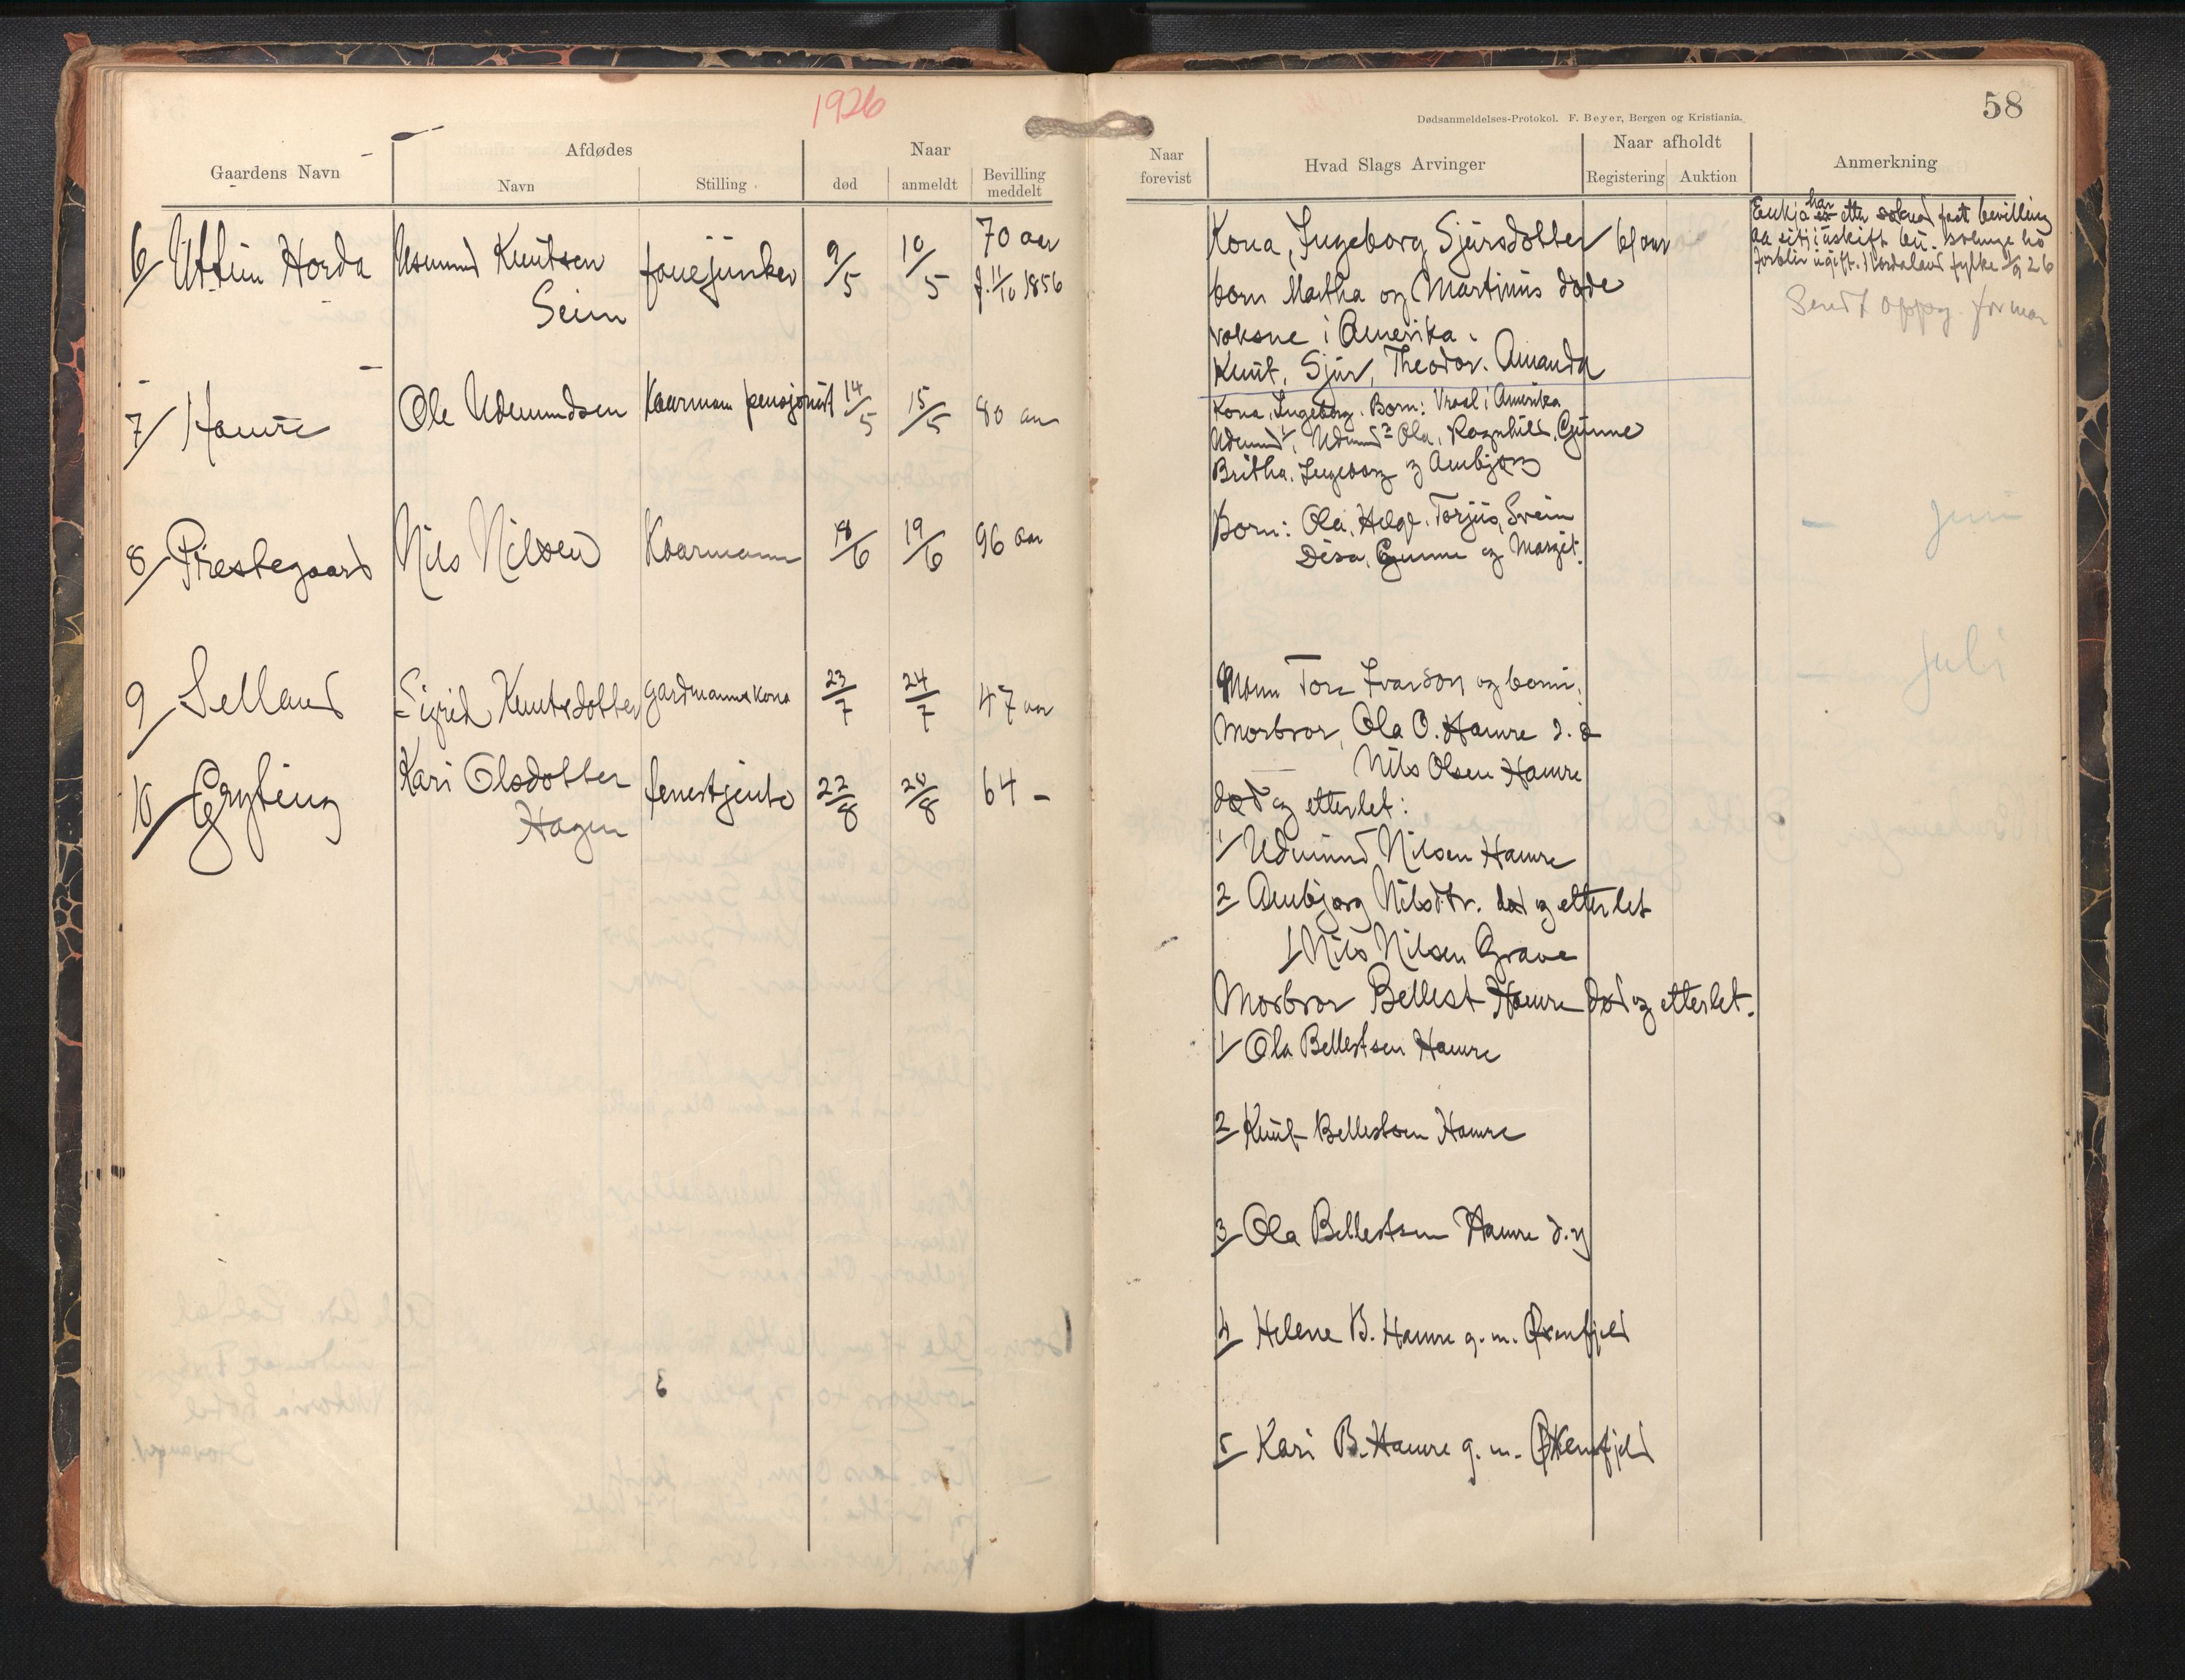 1926
58
Dødsanmeldelses-Protokol. F. Beyer, Bergen og Kristiania.
Gaardens Navn
Afdødes
Navn
Stilling
Naar
død
anmeldt
Bevilling meddelt
Naar forevist
Hvad Slags Arvinger
Naar afholdt
Registering
Auktion
Anmerkning
6/ Horda
Knutsen
Seim
fanejunker
9/5
10/5
70 aar
f. 11/10 1856
Kona, Ingeborg Sjursdotter 61 aar
born Martha og Martinus døde
voksne i Amerika.
Knut, Sjur, Theodor. Amanda
Enkja har etter søknad faat bevilling
aa sitj i uskift bu. solenge ho
forblir ugift. Hordaland fylke 1/9 26
Sendt oppg. for mai
7/ Hamre
Ole Udmundsen
Kaarmann pensjonist
14/5
15/5
80 aar
Kona, Ingeborg. Born: i Amerika
Udmund 1, Udmund 2 Ola, Ragnhild, Gunne
Britha, Ingeborg og Ambjørg
8/ Prestegaard
Nils Nilsen
Kaarmann
18/6
19/6
96 aar
Born: Ola, Helge, Torjus, Svein
Gunne og Margit.
– juni
9/ Selland
Sigrid Knutsdotter
gardmannskona
23/7
24/7
47 aar
Mann Tore Ivarson og born.
– juli
10/ Gryting
Kari Olsdotter
Hagen
22/8
64 –
Morbror, Ola O. Hamre
Nils Olsen Hamre
død og etterlet:
1/ Udmund Nilsen Hamre
2 Ambjørg Nilsdtr. død og etterlet
1 Nils Nilsen Grave
Morbror Bellest Hamre død og etterlet.
1/ Ola Bellestsen Hamre
2 Knut Bellestsen Hamre
3 Ola Bellestsen Hamre d.y
4 Helene B. Hamre g. m.
5 Kari B. Hamre g. m.